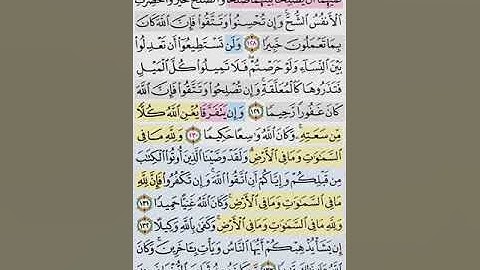 عَلَيْهِمَآ أَن يُصْلِحَا بَيْنَهُمَا صُلْحًا وَٱلصُّلْحُ خَيْرٌ وَأُحْضِرَتِ
ٱلْأَنفُسُ ٱلشُّحَّ وَإِن تُحْسِنُوا۟ وَتَتَّقُوا۟ فَإِنَّ ٱللَّهَ كَانَ
بِمَا تَعْمَلُونَ خَبِيرًا ١٢٨ وَلَن تَسْتَطِيعُوٓا۟ أَن تَعْدِلُوا۟
بَيْنَ ٱلنِّسَآءِ وَلَوْ حَرَصْتُمْ فَلَا تَمِيلُوا۟ كُلَّ ٱلْمَيْلِ
فَتَذَرُوهَا كَٱلْمُعَلَّقَةِ وَإِن تُصْلِحُوا۟ وَتَتَّقُوا۟ فَإِنَّ ٱللَّهَ
كَانَ غَفُورًا رَّحِيمًا ١٢٩ وَإِن يَتَفَرَّقَا يُغْنِ ٱللَّهُ كُلًّا
مِّن سَعَتِهِۦ وَكَانَ ٱللَّهُ وَٰسِعًا حَكِيمًا ١٣٠ وَلِلَّهِ مَا فِى
ٱلسَّمَٰوَٰتِ وَمَا فِى ٱلْأَرْضِ وَلَقَدْ وَصَّيْنَا ٱلَّذِينَ أُوتُوا۟ ٱلْكِتَٰبَ
مِن قَبْلِكُمْ وَإِيَّاكُمْ أَنِ ٱتَّقُوا۟ ٱللَّهَ وَإِن تَكْفُرُوا۟ فَإِنَّ لِلَّهِ
مَا فِى ٱلسَّمَٰوَٰتِ وَمَا فِى ٱلْأَرْضِ وَكَانَ ٱللَّهُ غَنِيًّا حَمِيدًا ١٣١
وَلِلَّهِ مَا فِى ٱلسَّمَٰوَٰتِ وَمَا فِى ٱلْأَرْضِ وَكَفَىٰ بِٱللَّهِ وَكِيلًا ١٣٢
إِن يَشَأْ يُذْهِبْكُمْ أَيُّهَا ٱلنَّاسُ وَيَأْتِ بِـَٔاخَرِينَ وَكَانَ